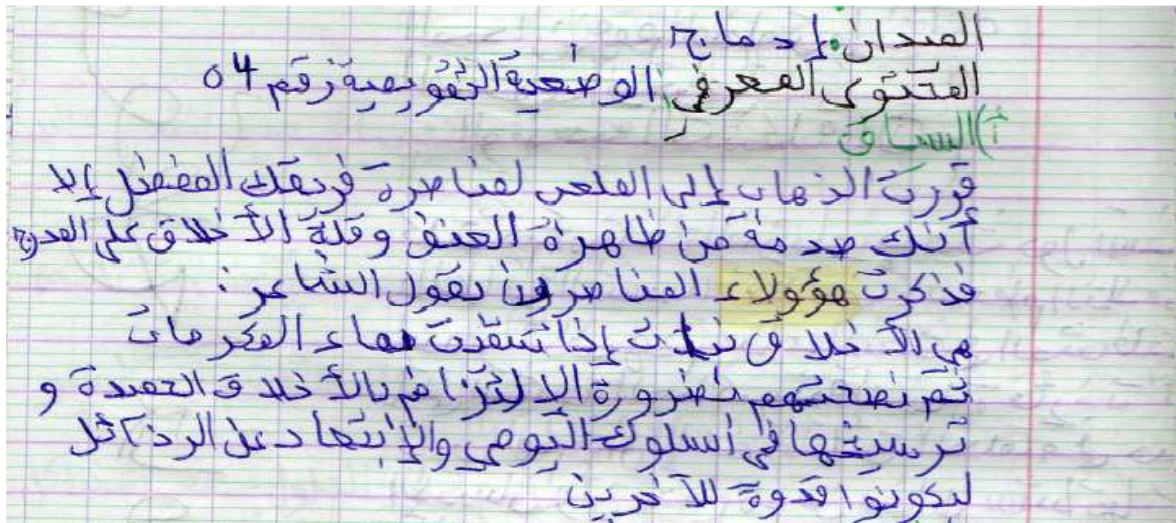 الميدان: إدماج
المحتوى المعرفي: الوضعية التقويمية رقم 04
أ) السياق
قررت الذهاب إلى الملعب لمناصرة فريقك المفضل إلا
أنك صدمة من ظاهرة العنف وقلة الأخلاق على المدرج
فذكرت هؤولاء المناصرون بقول الشاعر:
هي الأخلاق نبات إذا سقيت بماء المكرمات
ثم نصحتهم بضرورة الإلتزام بالأخلاق الحميدة و
ترسيخها في أسلوك اليومي والإبتعاد عن الرذائل
ليكونوا قدوة للآخرين